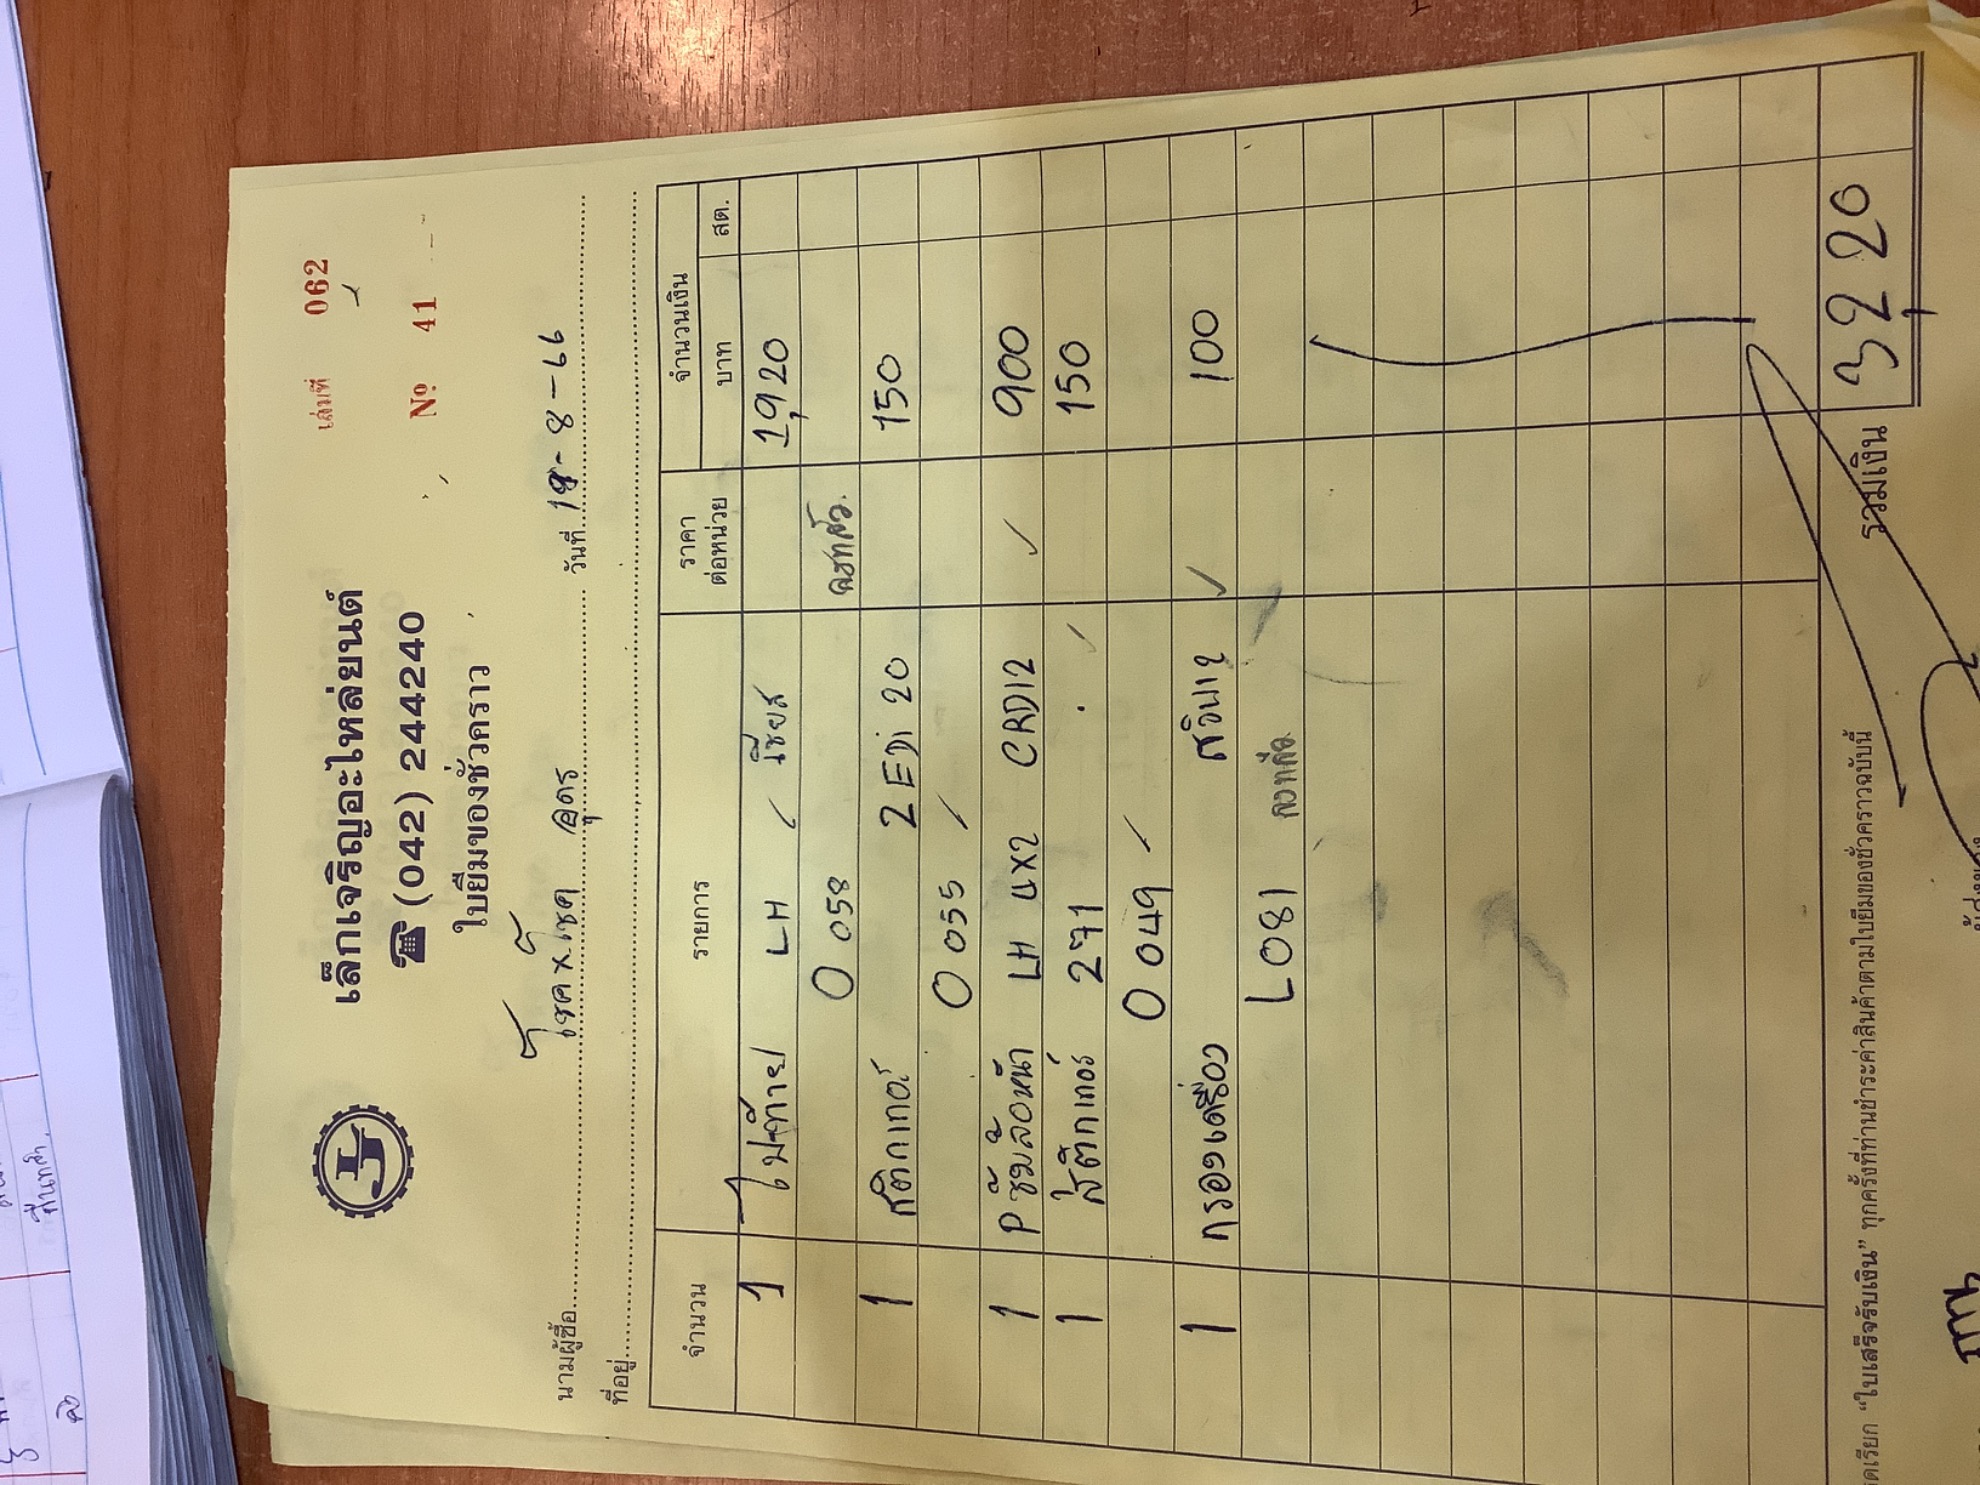 เล่มที่ 062
เล็กเจริญอะไหล่ยนต์
☎ (042) 244240
№ 41
ใบยืมของชั่วคราว
นามผู้ซื้อ โชค x โชค อุดร วันที่ 19-8-66
ที่อยู่
จำนวน รายการ ราคาต่อหน่วย จำนวนเงิน
บาท สต.
1 ไฟท้าย LH 1,920
O 058
1 สติกเกอร์ 2EDi 20 150
O 055
1 P ซุ้มล้อหน้า LH 4x2 CRD12 900
1 สติกเกอร์ 271 150
O 049
1 กรองเครื่อง 100
L 081
รวมเงิน 3220
เรียก “ใบเสร็จรับเงิน” ทุกครั้งที่ท่านชำระค่าสินค้าตามใบยืมของชั่วคราวฉบับนี้